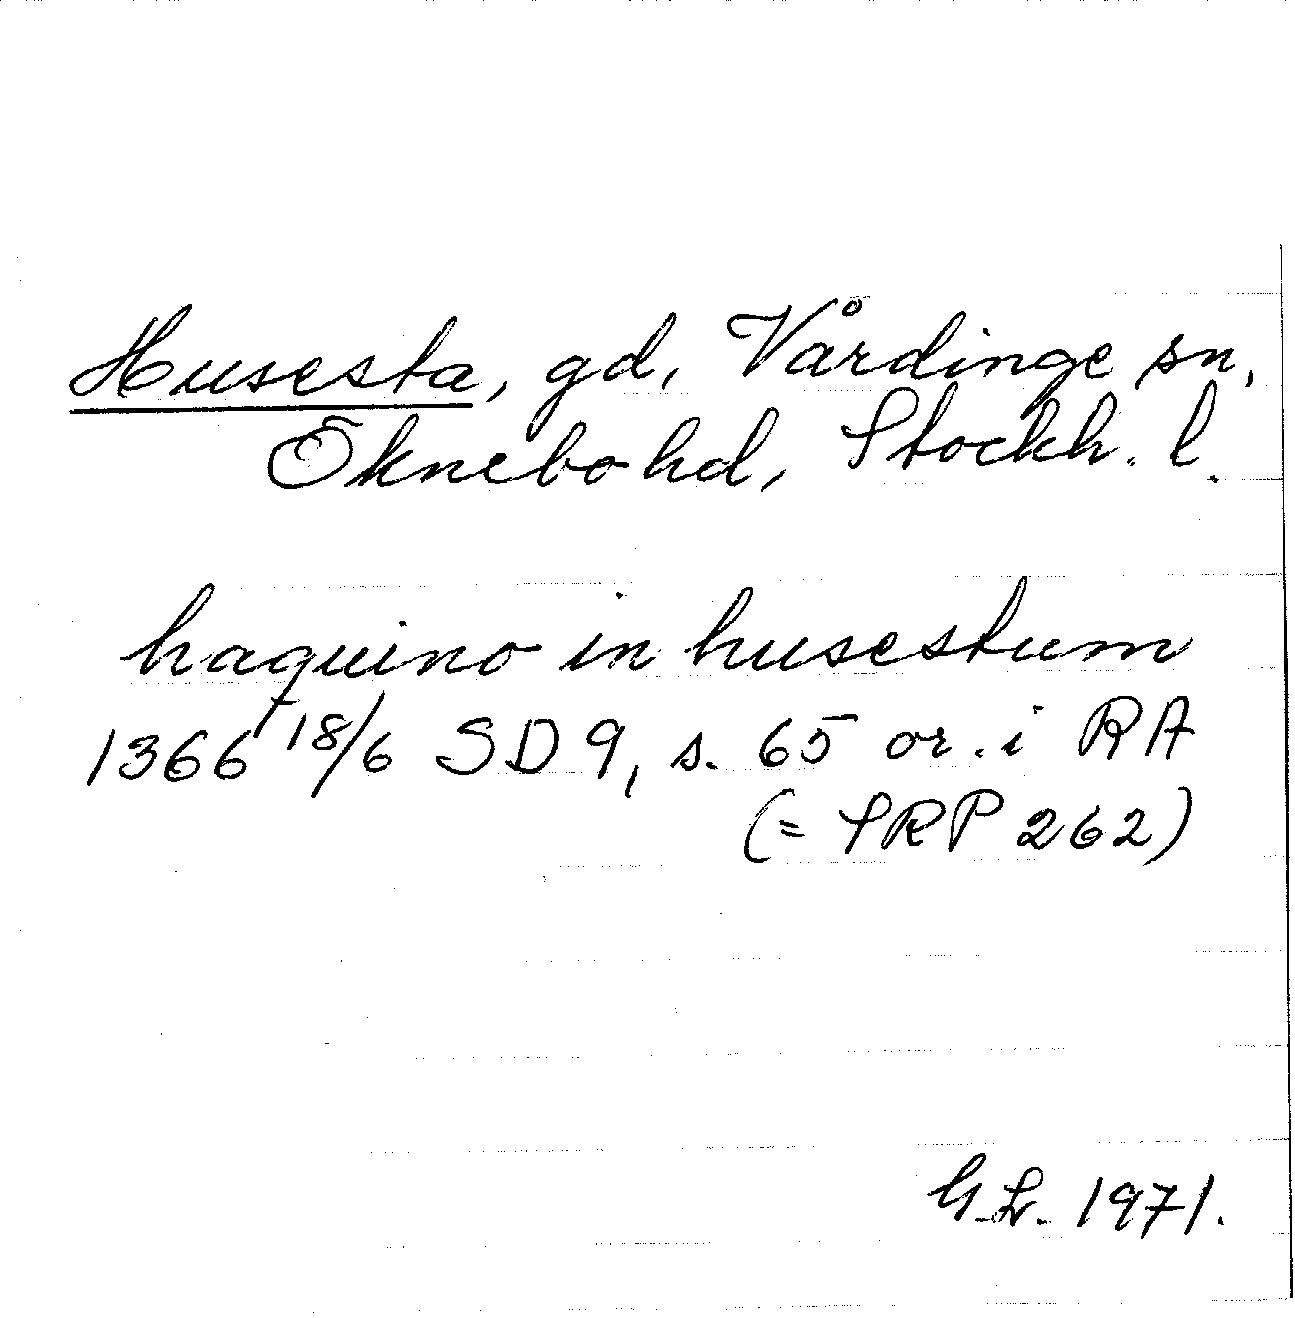 Husesta, gd, Vårdinge sn,
Öknebo hd, Stockh. l.
haquino in husestum
1366 18/6 SD 9, s. 65 or. i RA
(= SRP 262)
G.L. 1971.